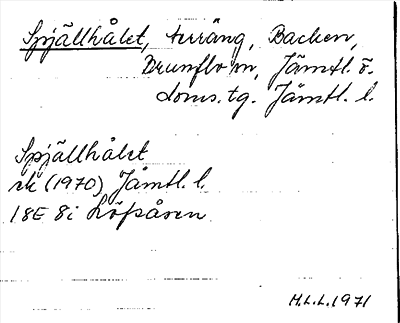 Spjällhålet, turräng, Backen,
Brunflo sn, Jämtl. ö.
doms. tg. Jämtl. l.
Spjällhålet
ek (1970) Jämtl. l.
18E 8i Löfsåsen
H.L.L. 1971